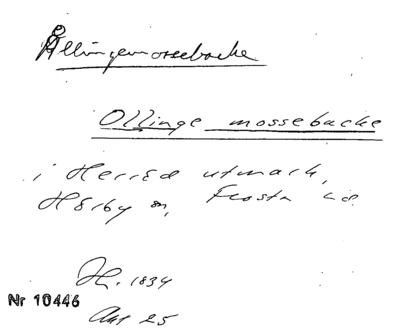 Ållingemossebacke
Ollinge mossebacke
i Herröd utmark,
Hörby sn, Frosta hd.
H. 1834
Nr 10446
Akt 25